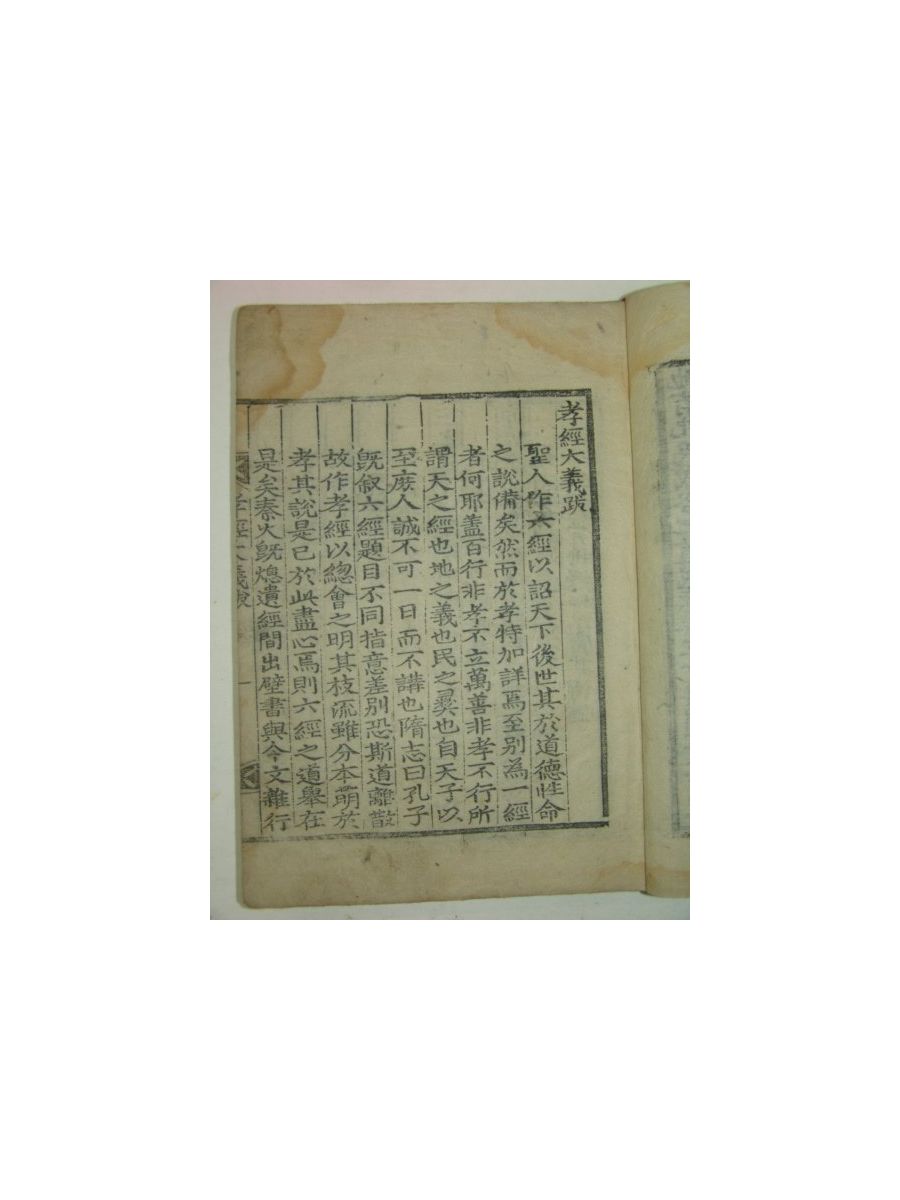 孝經大義跋
聖人作六經以詔天下後世其於道德性命
之說備矣然而於孝特加詳焉至別為一經
者何耶盖百行非孝不立萬善非孝不行所
謂天之經也地之義也民之彛也自天子以
至庻人誠不可一日而不講也隋志曰孔子
旣叙六經題目不同指意差别恐斯道離散
故作孝經以總會之明其枝流雖分本萌於
孝其說是已於此盡心焉則六經之道舉在
是矣秦火旣熄遺經間出壁書與今文雜行
孝經大義跋 一